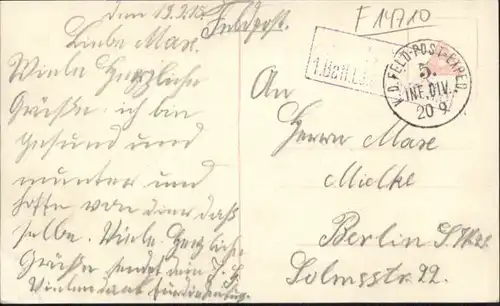 den 19.9.15
Feldpost.
F 14710
Liebe Max.
Viele Herzliche
Grüße. ich bin
gesund und
munter und
hoffe von dier daß
selbe. Viele Herzliche
Grüße sendet dein
Vielen Dank für
K.D. FELD-POST-EXPED.
5.
INF. DIV.
20 9
An
Herrn Max
Mielke
Berlin S.W.
Solmsstr. 22.